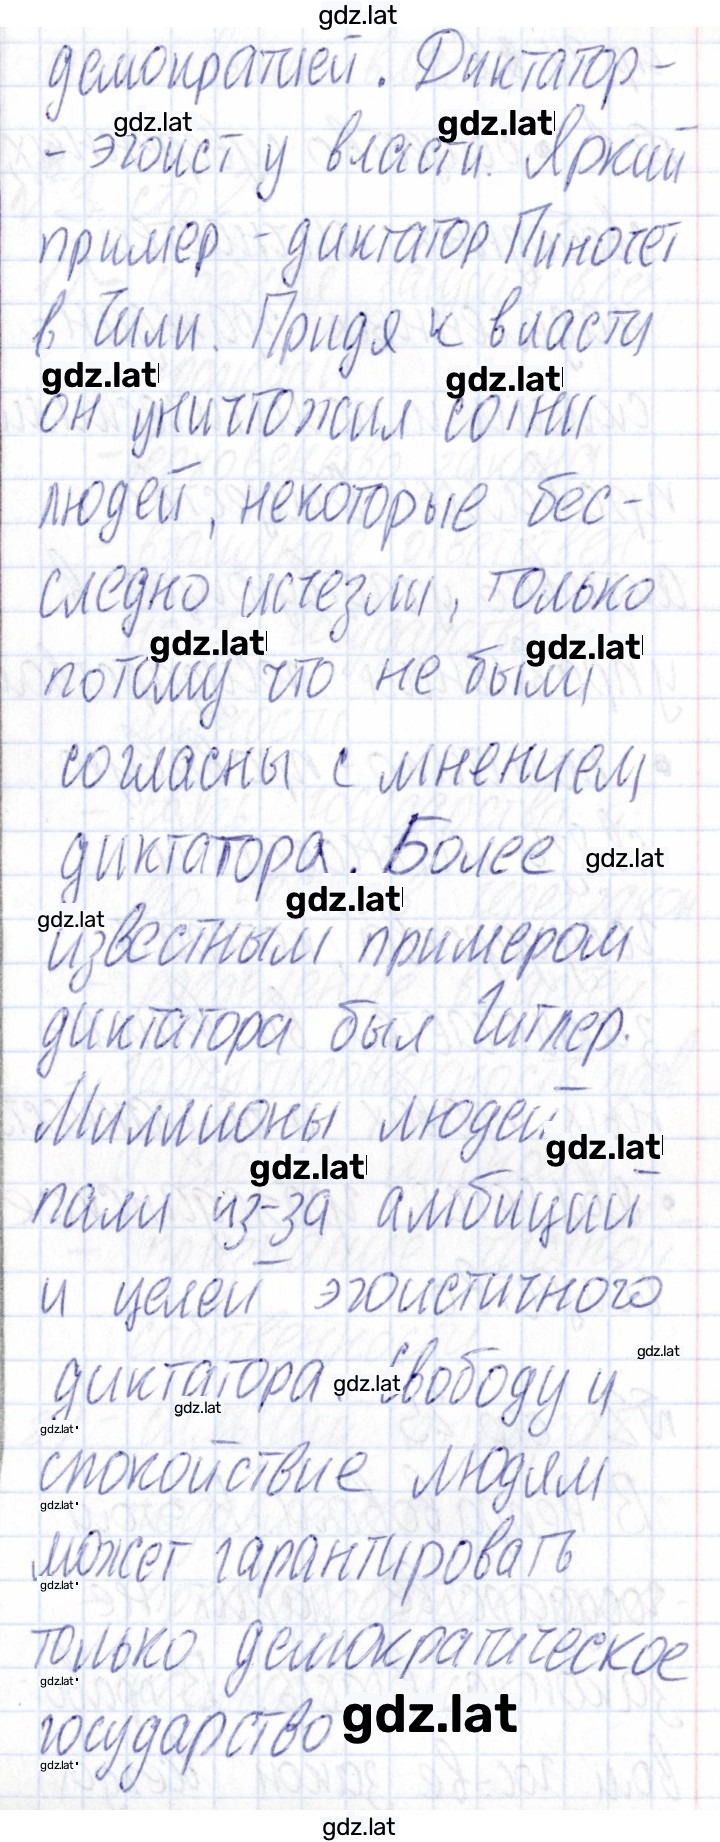 gdz.lat
демократией. Диктатор-
gdz.lat gdz.lat
- эгоист у власти. Яркий
пример - диктатор Пиночет
в Чили. Придя к власти
gdz.lat gdz.lat
он уничтожил сотни
людей, некоторые бес-
следно исчезли, только
gdz.lat gdz.lat
потому что не были
согласны с мнением
диктатора. Более gdz.lat
gdz.lat gdz.lat
известным примером
диктатора был Гитлер.
Миллионы людей
gdz.lat gdz.lat
пали из-за амбиций
и целей эгоистичного
gdz.lat
диктатора. Свободу и
gdz.lat gdz.lat
gdz.lat
спокойствие людям
gdz.lat
может гарантировать
gdz.lat
только демократическое
gdz.lat
государство gdz.lat
gdz.lat
gdz.lat